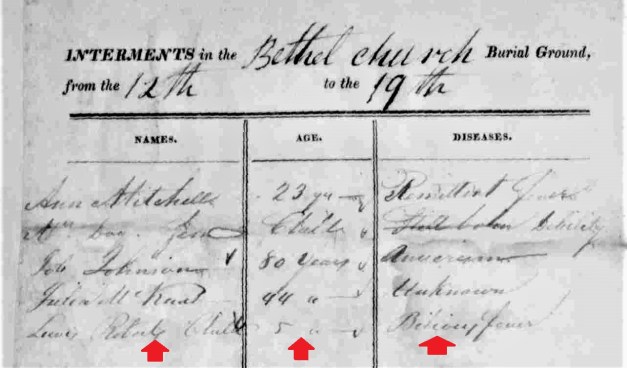 INTERMENTS in the Bethel church Burial Ground,
from the 12th to the 19th
NAMES. AGE. DISEASES.
Ann Mitchell 23 Remittent fever
Child Debility
Job Johnson 80 years
Julia 44 " Unknown
Lewis Roberts Child 5 " Bilious fever